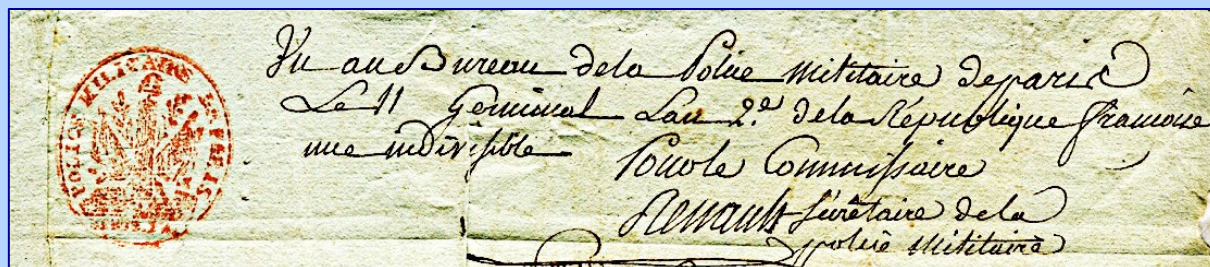 POLICE MILITAIRE DE PARIS
Vu au Bureau dela Police Militaire deparis
Le 11 Germinal Lan 2.e dela République francoise
une indivisible
Pour le Commissaire
Renault Sécrétaire de la
police Militaire